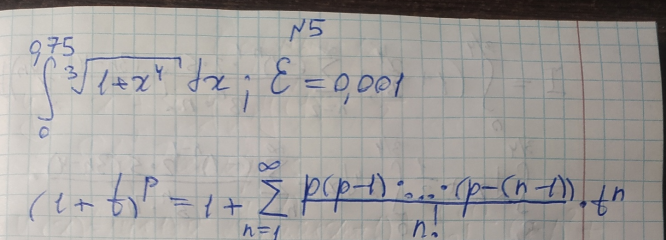 №5
∫₀^{0,75} ∛(1+x⁴) dx ; Ɛ = 0,001
(1 + t)^p = 1 + ∑_{n=1}^{∞} p(p-1)·...·(p-(n-1)) / n! · t^n